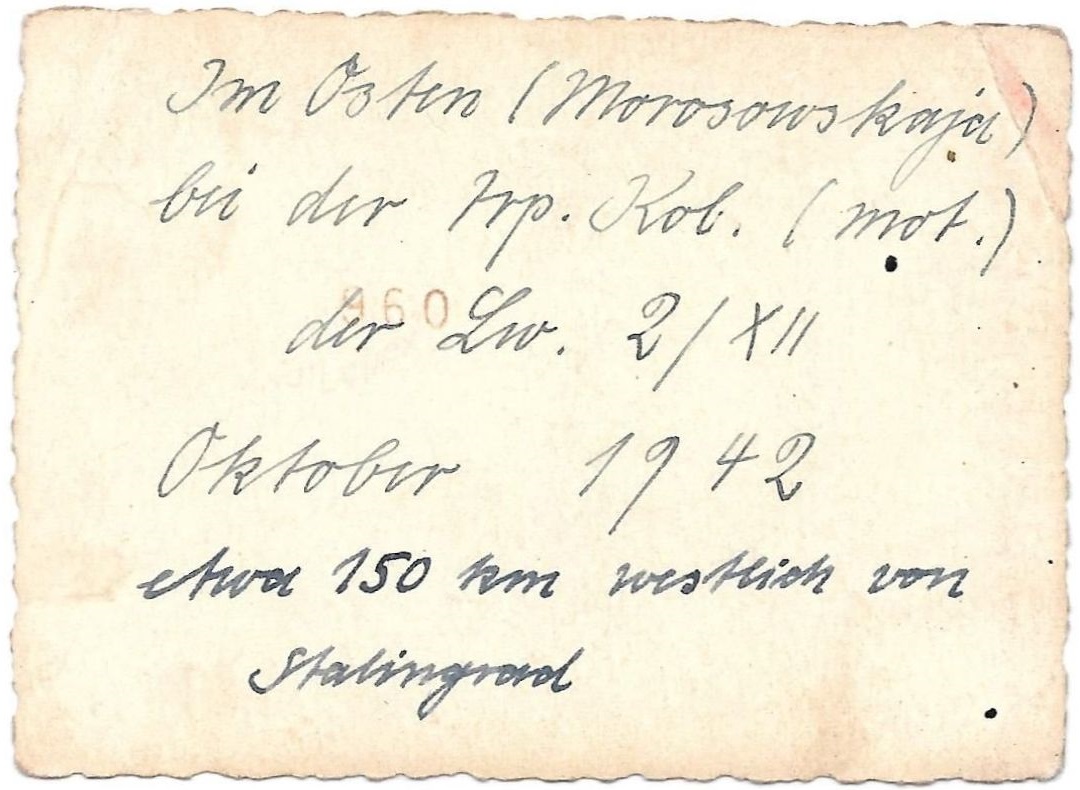 Im Osten (Morosowskaja)
bei der Trp. Kol. (mot.)
960
der Lw. 2/XII
Oktober 1942
etwa 150 km westlich von
Stalingrad